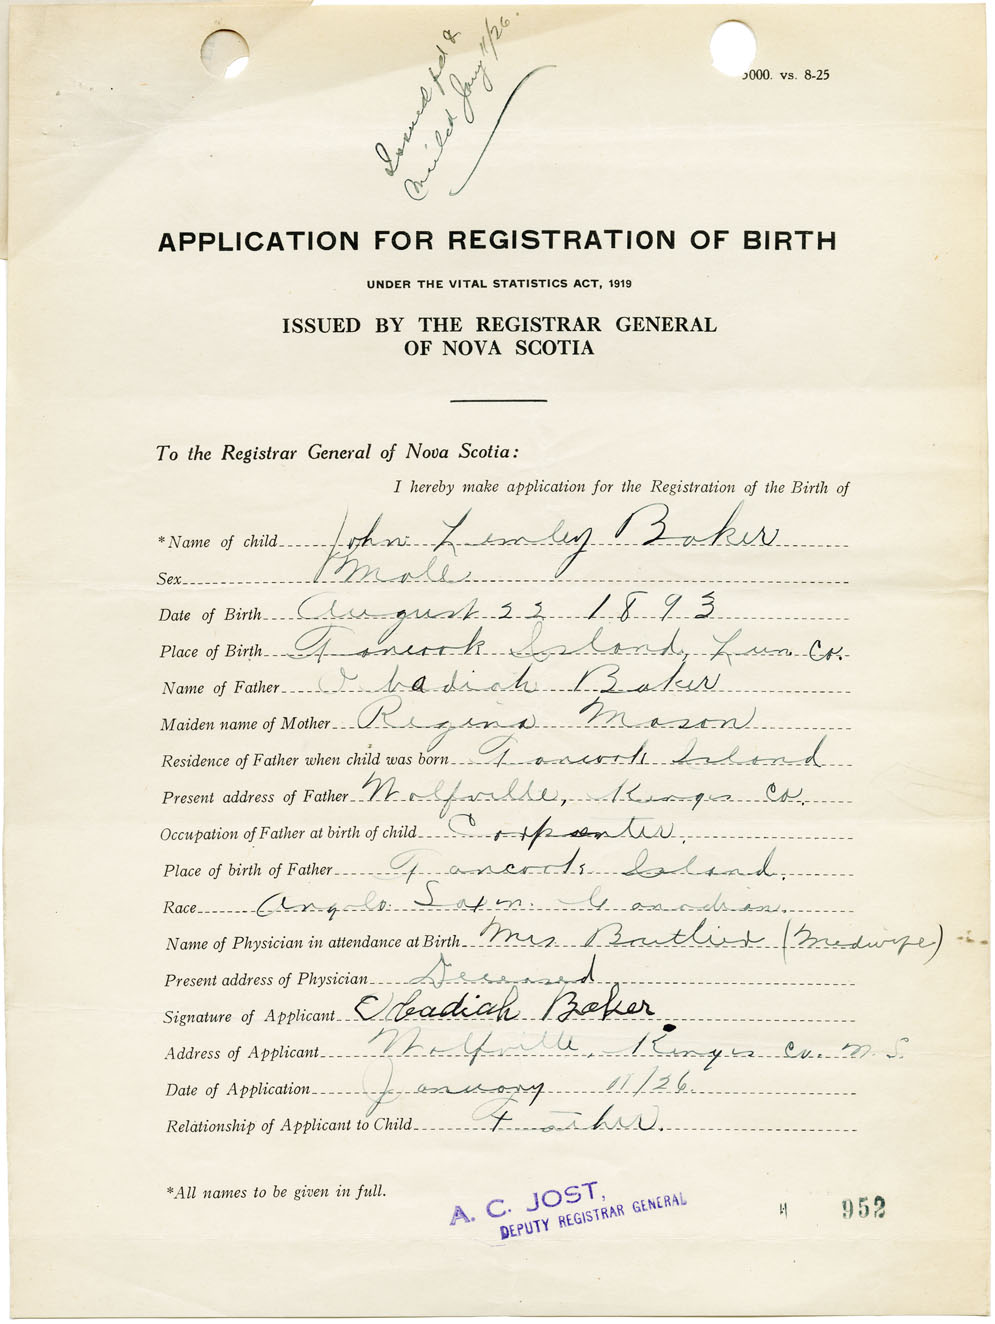 Issued pd &
Mailed Jany 11/26.
000. vs. 8-25
APPLICATION FOR REGISTRATION OF BIRTH
UNDER THE VITAL STATISTICS ACT, 1919
ISSUED BY THE REGISTRAR GENERAL
OF NOVA SCOTIA
To the Registrar General of Nova Scotia:
I hereby make application for the Registration of the Birth of
*Name of child John Lemley Baker
Sex Male
Date of Birth August 22 1893
Place of Birth Tancook Island, Lun Co.
Name of Father Obadiah Baker
Maiden name of Mother Regina Mason
Residence of Father when child was born Tancook Island
Present address of Father Wolfville, Kings Co.
Occupation of Father at birth of child Carpenter.
Place of birth of Father Tancook Island.
Race Anglo. Saxon. Canadian.
Name of Physician in attendance at Birth Mrs Boutlier (Medwife)
Present address of Physician Deceased
Signature of Applicant Obadiah Baker
Address of Applicant Wolfville, Kings Co. N.S.
Date of Application January 11/26.
Relationship of Applicant to Child Father.
*All names to be given in full.
A. C. JOST,
DEPUTY REGISTRAR GENERAL
952